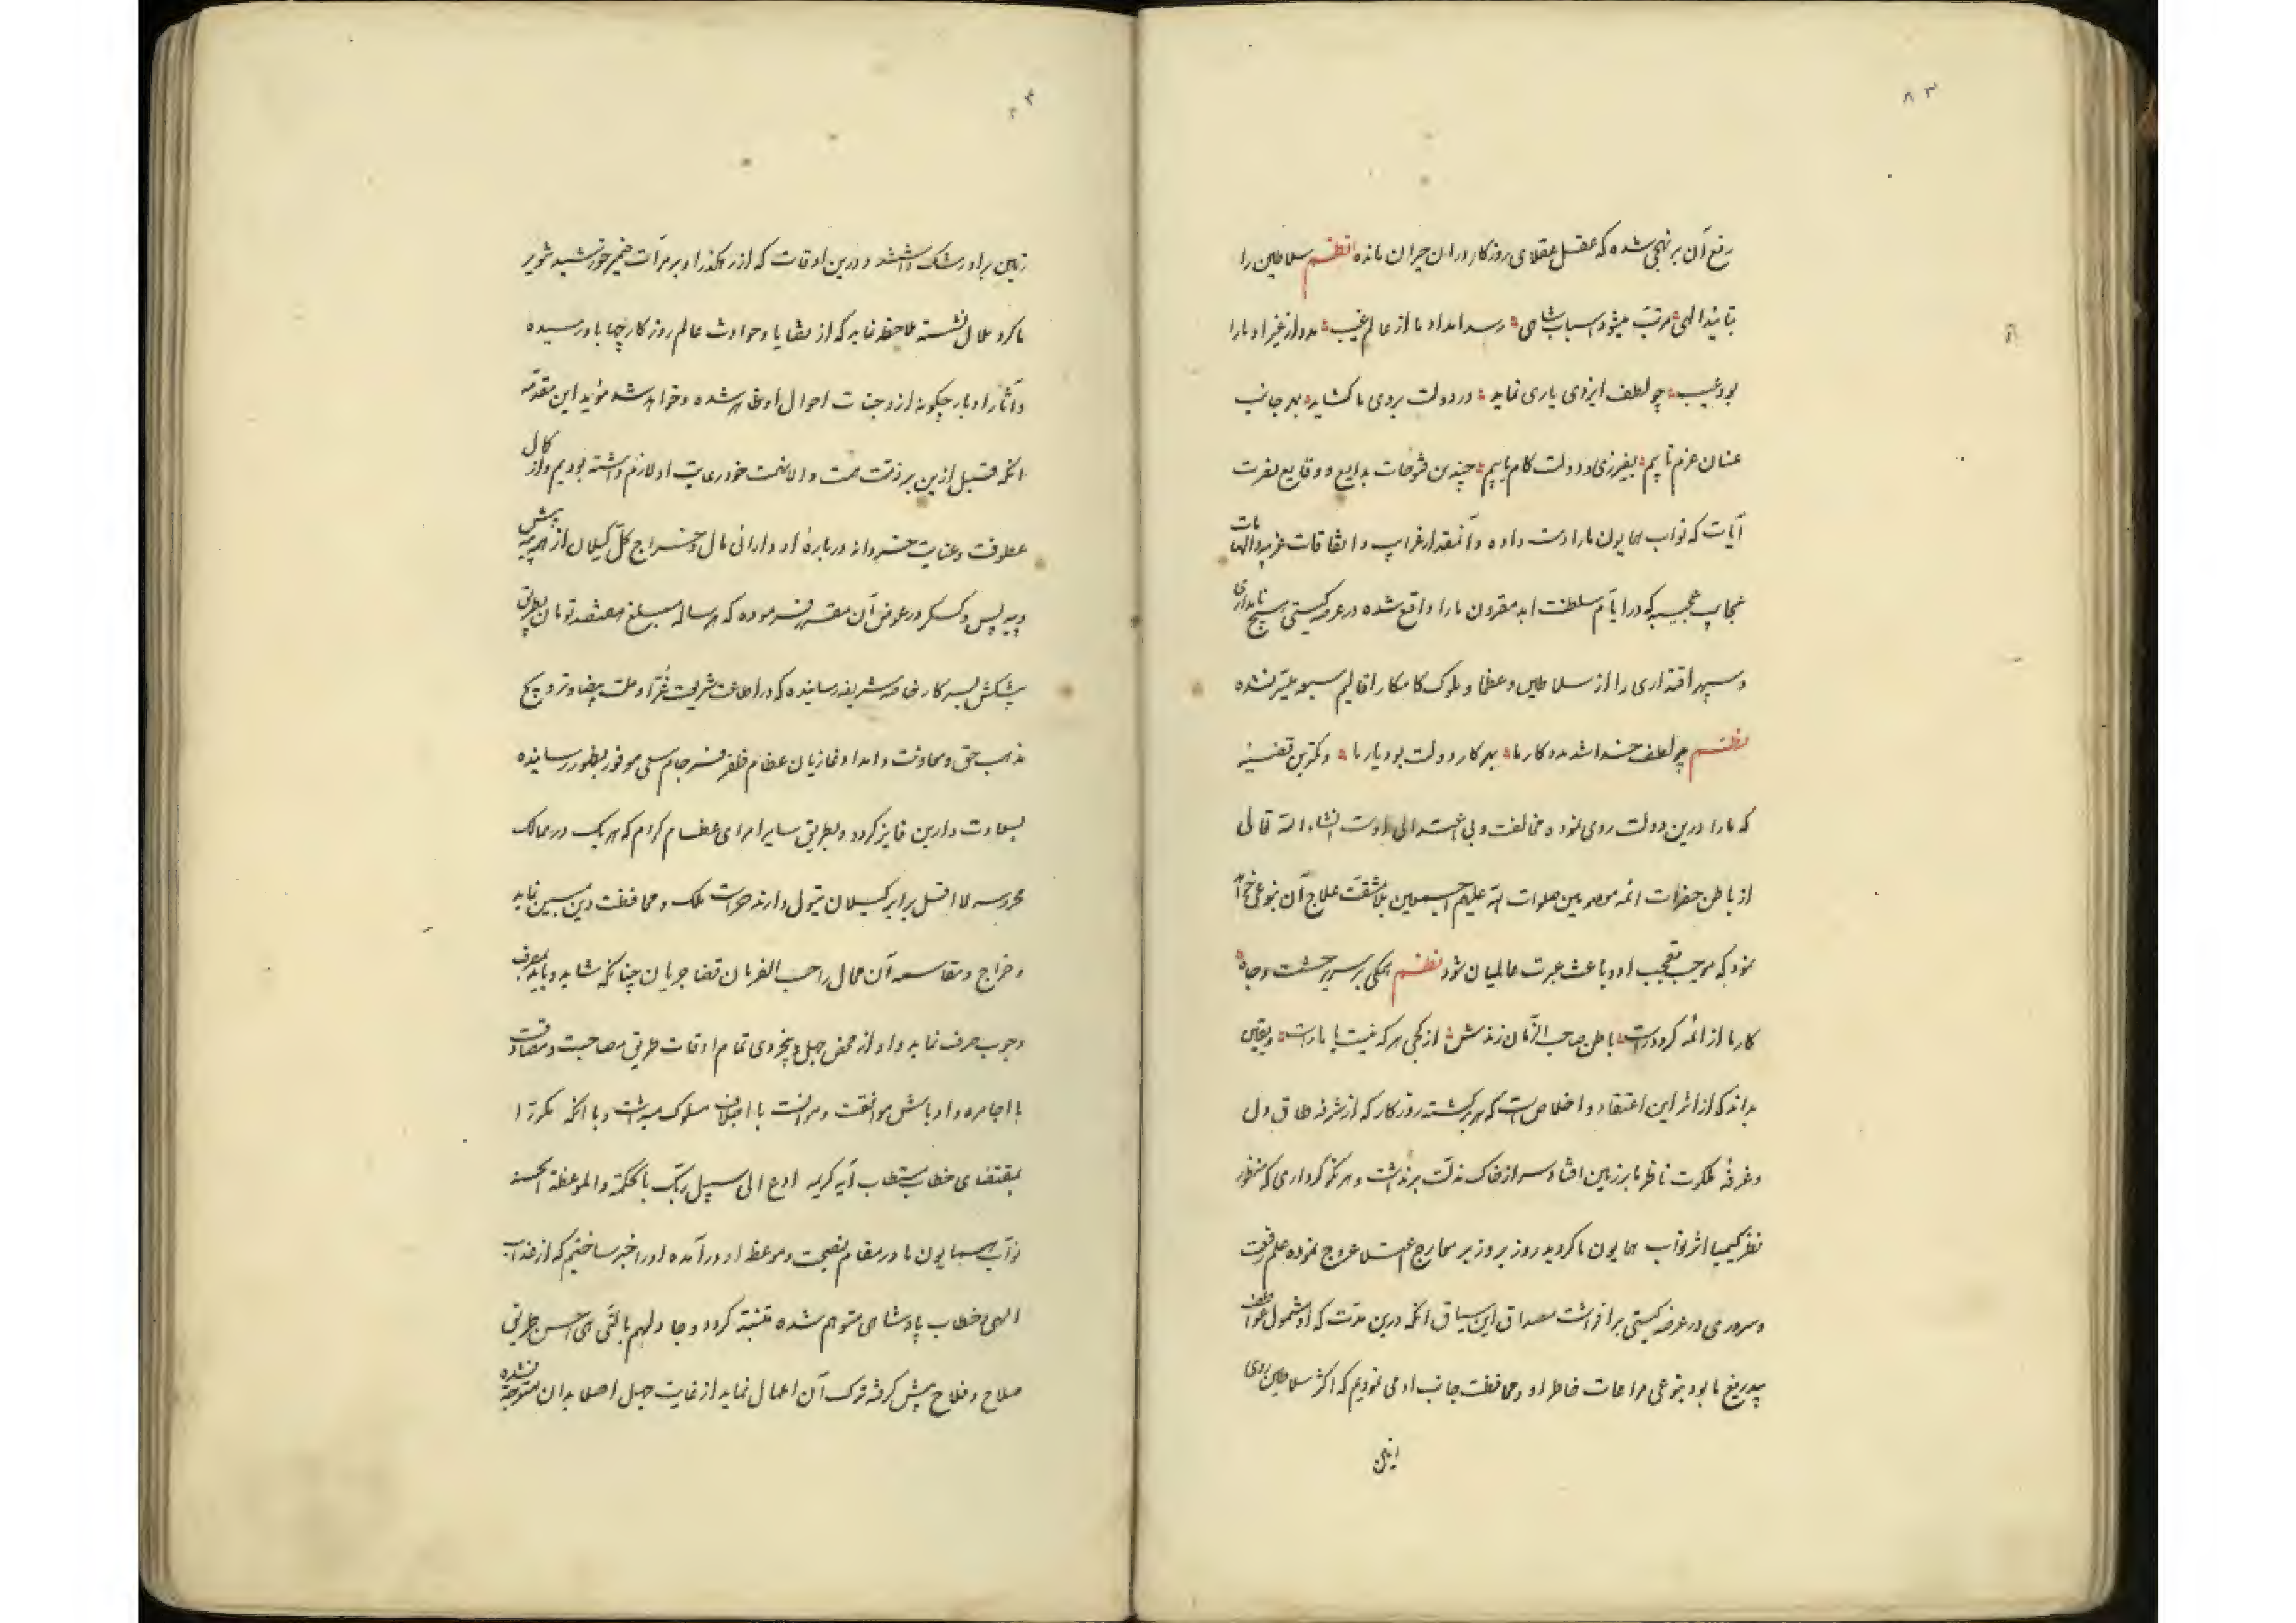 ۸۳
رفع آن بر نهجی شده که عقل عقلای روزکار در ان حیران مانده نظم سلاطین را
بتایید الهی مرتب میشود اسباب شاهی رسد امداد ما از عالم غیب مدد از غیر او ما را
بود عیب چو لطف ایزدی یاری نماید در دولت بروی ما کشاید بهر جانب
عنان عزم تابیم بفیروزی و دولت کام یابیم چندین فتوحات بدایع و وقایع نصرت
آیات که نواب همایون ما را دست داده و آنمقدار غرایب و اتفاقات غریبه و الهامات
عجایب عجیبه که در ایام سلطنت ابد مقرون ما را واقع شده در عرصه کیتی هیچ نامداری
و سپهر اقتداری را از سلاطین و عظما و ملوک کامکار اقالیم سبعه میسر نشده
نظم چو لطف خدا شد مددکار ما بهر کار دولت بود یار ما و کمترین قضیه
که ما را درین دولت روی نموده مخالفت و بی اعتدالی اوست انشاء الله تعالی
از باطن حضرات ائمه معصومین صلوات الله علیهم اجمعین بلا مشقت علاج آن بنوعی خواهد
نمود که موجب تعجب او و باعث عبرت عالمیان شود نظم همکی بر سریر حشمت و جاه
کار ما از ائمه کردد راست باطن صاحب الزمان زندش از کجی هر که نیست با ما راست و یقین
بداند که از اثر این اعتقاد و اخلاص است که هر برکشته روزکار که از شرفه طاق دل
و غرفه ملکوت ناظر ما بر زمین افتاد سر از خاک مذلت برنداشت و هر نکو کرداری که منظور
نظر کیمیا اثر نواب همایون ما کردید روز بروز بر معارج اعتلا عروج نموده علم رفعت
و سروری در عرصه کیتی برافراشت مصداق این سیاق انکه درین مدت که او مشمول عواطف
بیدریغ ما بود بنوعی مراعات خاطر او و محافظت جانب او می نمودیم که اکثر سلاطین روی
زمین بر او رشک داشتند و درین اوقات که از رهکذر او بر مرآت ضمیر خورشید تنویر
ما کرد ملال نشسته ملاحظه نماید که از قضایا و حوادث عالم روزکار چها باو رسیده
و آثار ادبار چکونه از وجنات احوال او ظاهر شده و خواهد شد مؤید این مقدمه
انکه قبل ازین بر ذمت همت والا نهمت خود رعایت او لازم داشته بودیم و از کمال
عطوفت و عنایت خسروانه درباره او دارائی مال و خراج کل کیلان از
و بیه پس و کسکر در عوض آن مقرر فرموده که هر ساله مبلغ هفتصد تومان بطریق
پیشکش بسرکار خاصه شریفه رسانیده که در اطاعت شریعت غرا و ملت بیضا و ترویج
مذهب حق و معاونت و امداد غازیان عظام ظفر فرجام سعی موفور بظهور رسانیده
بسعادت دارین فایز کردد و بطریق سایر امرای عظام کرام که هر یک در ممالک
محروسه لا اقل برابر کیلان تیول دارند حراست ملک و محافظت دین مبین نماید
و خراج و مقاسمه آن محال را حسب الفرمان قضا جریان چنانکه شاید و باید بمصرف
وجوب صرف نماید و او از محض جهل و بیخردی تمام اوقات طریق مصاحبت و مصادقت
با اجامره و اوباش موافقت و موانست با اجلاف مسلوک میداشت و با انکه مکررا
بمقتضای خطاب مستطاب آیه کریمه ادع الی سبیل ربک بالحکمة و الموعظة الحسنه
نواب همایون ما در مقام نصیحت و موعظه او درآمده او را خبر ساختیم که از عذاب
الهی و خطاب پادشاهی متوهم شده متنبه کردد و جادلهم بالتی هی احسن طریق
صلاح و فلاح پیش کرفته ترک آن اعمال نماید از غایت جهل اصلا بدان متوجه نشده